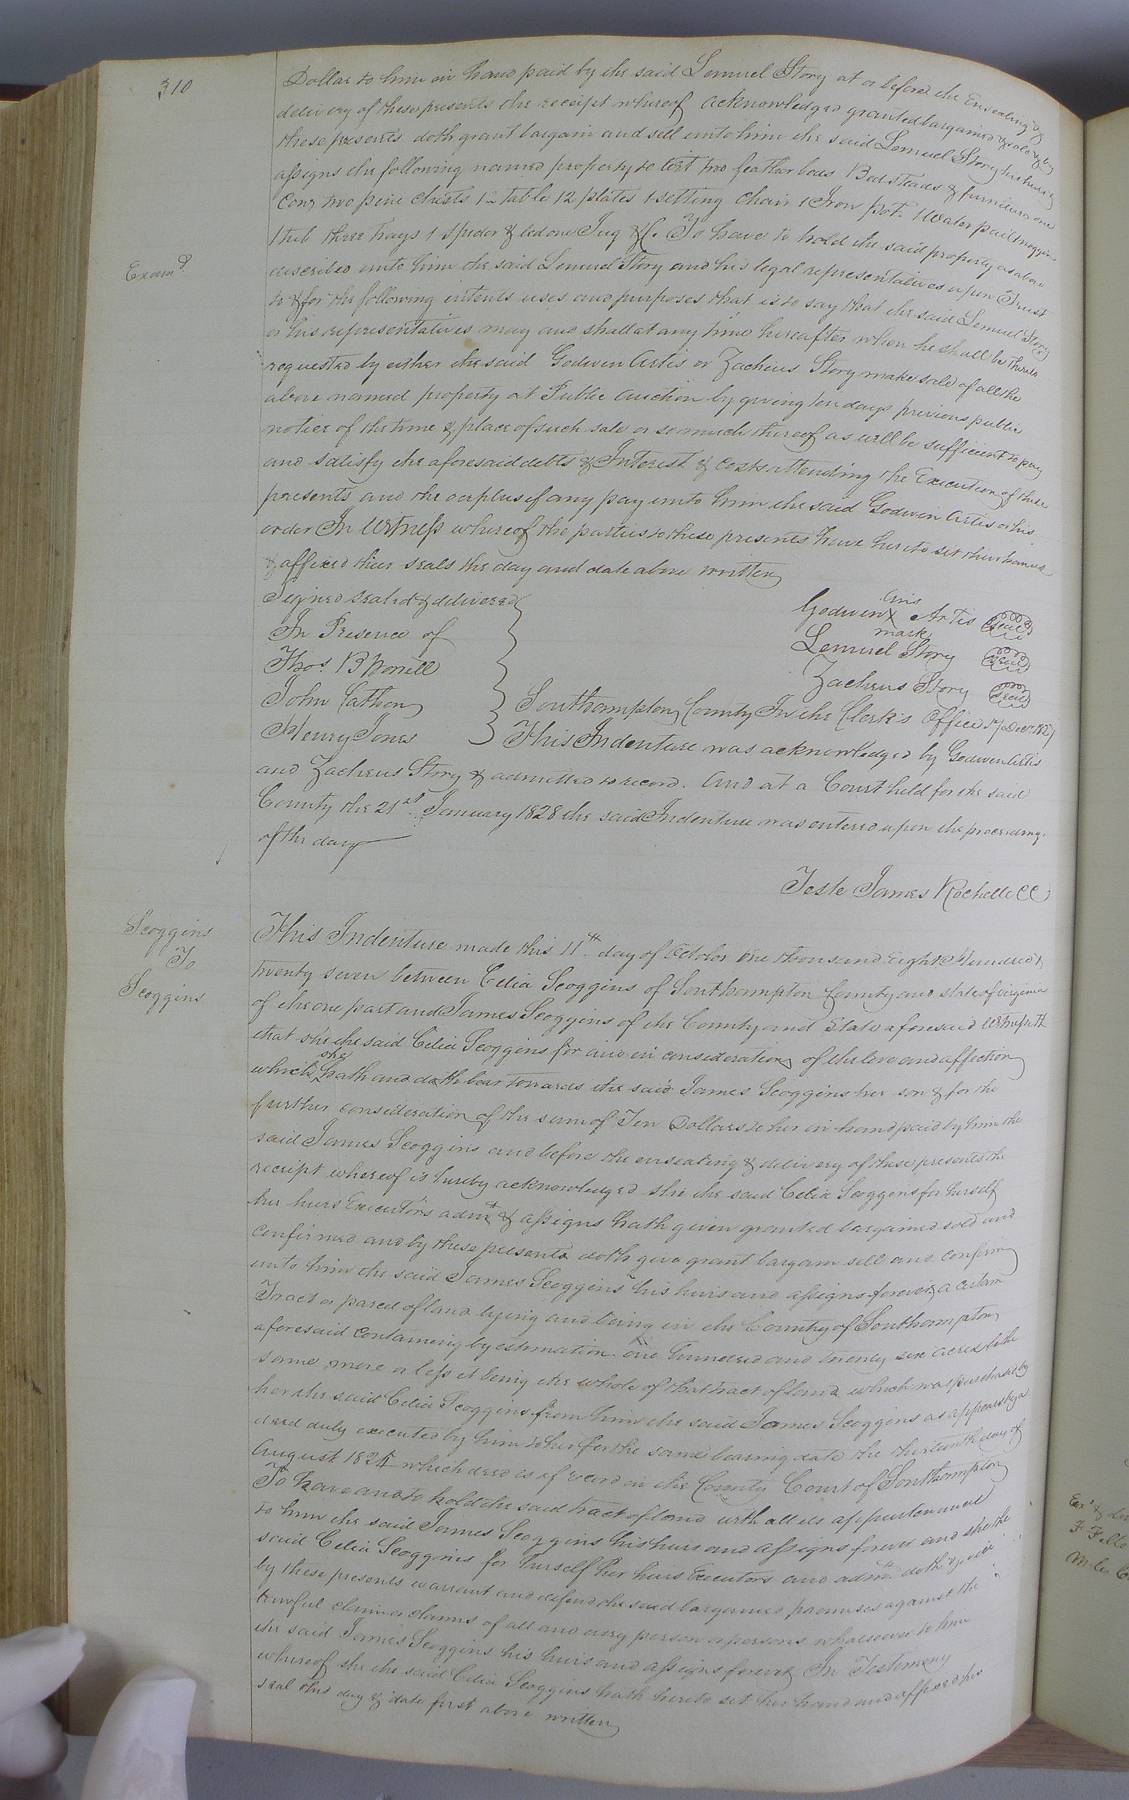 310
Dollar to him in hand paid by the said Lemuel Story at or before the Ensealing &
delivery of these presents the receipt whereof acknowledged granted bargained & sold & by
these presents doth grant bargain and sell unto him the said Lemuel Story his heirs &
assigns the following named property to wit two feather beds Bedsteads & furniture one
Cow two pine Chests 1 table 12 plates 1 setting Chair 1 Iron pot 1 Water pail
1 tub three trays 1 Spider & led one Jug &c. To have to hold the said property as above
Examd
described unto him the said Lemuel Story and his legal representatives upon Trust
to & for the following intents uses and purposes that is to say that the said Lemuel Story
or his representatives may and shall at any time hereafter when he shall be thereto
requested by either the said Godwin Artis or Zacheus Story make sale of all the
above named property at Public auction by giving ten days previous public
notice of the time & place of such sale or so much thereof as will be sufficient to pay
and satisfy the aforesaid debts & Interest & costs attending the Execution of these
presents and the overplus if any pay unto him the said Godwin Artis or his
order In Witness whereof the parties to these presents have hereto set their hands
& affixed their seals the day and date above written
Signed sealed & delivered
In Presence of
Thos B Worrell
John
Henry Jones
his
Godwin X Artis seal
mark
Lemuel Story seal
Zacheus Story seal
Southampton County In the Clerk's Office 17 Decr 1827
This Indenture was acknowledged by Godwin Artis
and Zacheus Story & admitted to record. And at a Court held for the said
County the 21st January 1828 the said Indenture was entered upon the proceedings
of the day
Teste James Rochelle CC
Scoggins
To
Scoggins
This Indenture made this 11th day of October One thousand Eight Hundred &
twenty seven between Celia Scoggins of Southampton County and state of Virginia
of the one part and James Scoggins of the County and State aforesaid Witnesseth
that she the said Celia Scoggins for and in consideration of the love and affection
which she hath and doth bear towards the said James Scoggins her son & for the
further consideration of the sum of Ten Dollars to her in hand paid by him the
said James Scoggins and before the ensealing & delivery of these presents the
receipt whereof is hereby acknowledged she the said Celia Scoggins for herself
her heirs Executors admr & assigns hath given granted bargained sold and
confirmed and by these presents doth give grant bargain sell and confirm
unto him the said James Scoggins his heirs and assigns forever a certain
Tract or parcel of land lying and being in the County of Southampton
aforesaid containing by estimation one hundred and twenty six acres be the
same more or less it being the whole of that tract of land which was purchased by
her the said Celia Scoggins from him the said James Scoggins as appears by a
deed duly executed by him to her for the same bearing date the thirteenth day of
August 1824 which deed is of record in the County Court of Southampton
To have and to hold the said tract of land with all its appurtenances
to him the said James Scoggins his heirs and assigns forever and she the
said Celia Scoggins for herself her heirs Executors and admrs doth
by these presents warrant and defend the said bargained premises against the
lawful claim or claims of all and every person or persons whatsoever to him
the said James Scoggins his heirs and assigns forever In Testimony
whereof she the said Celia Scoggins hath hereto set her hand and affixed her
seal this day & date first above written